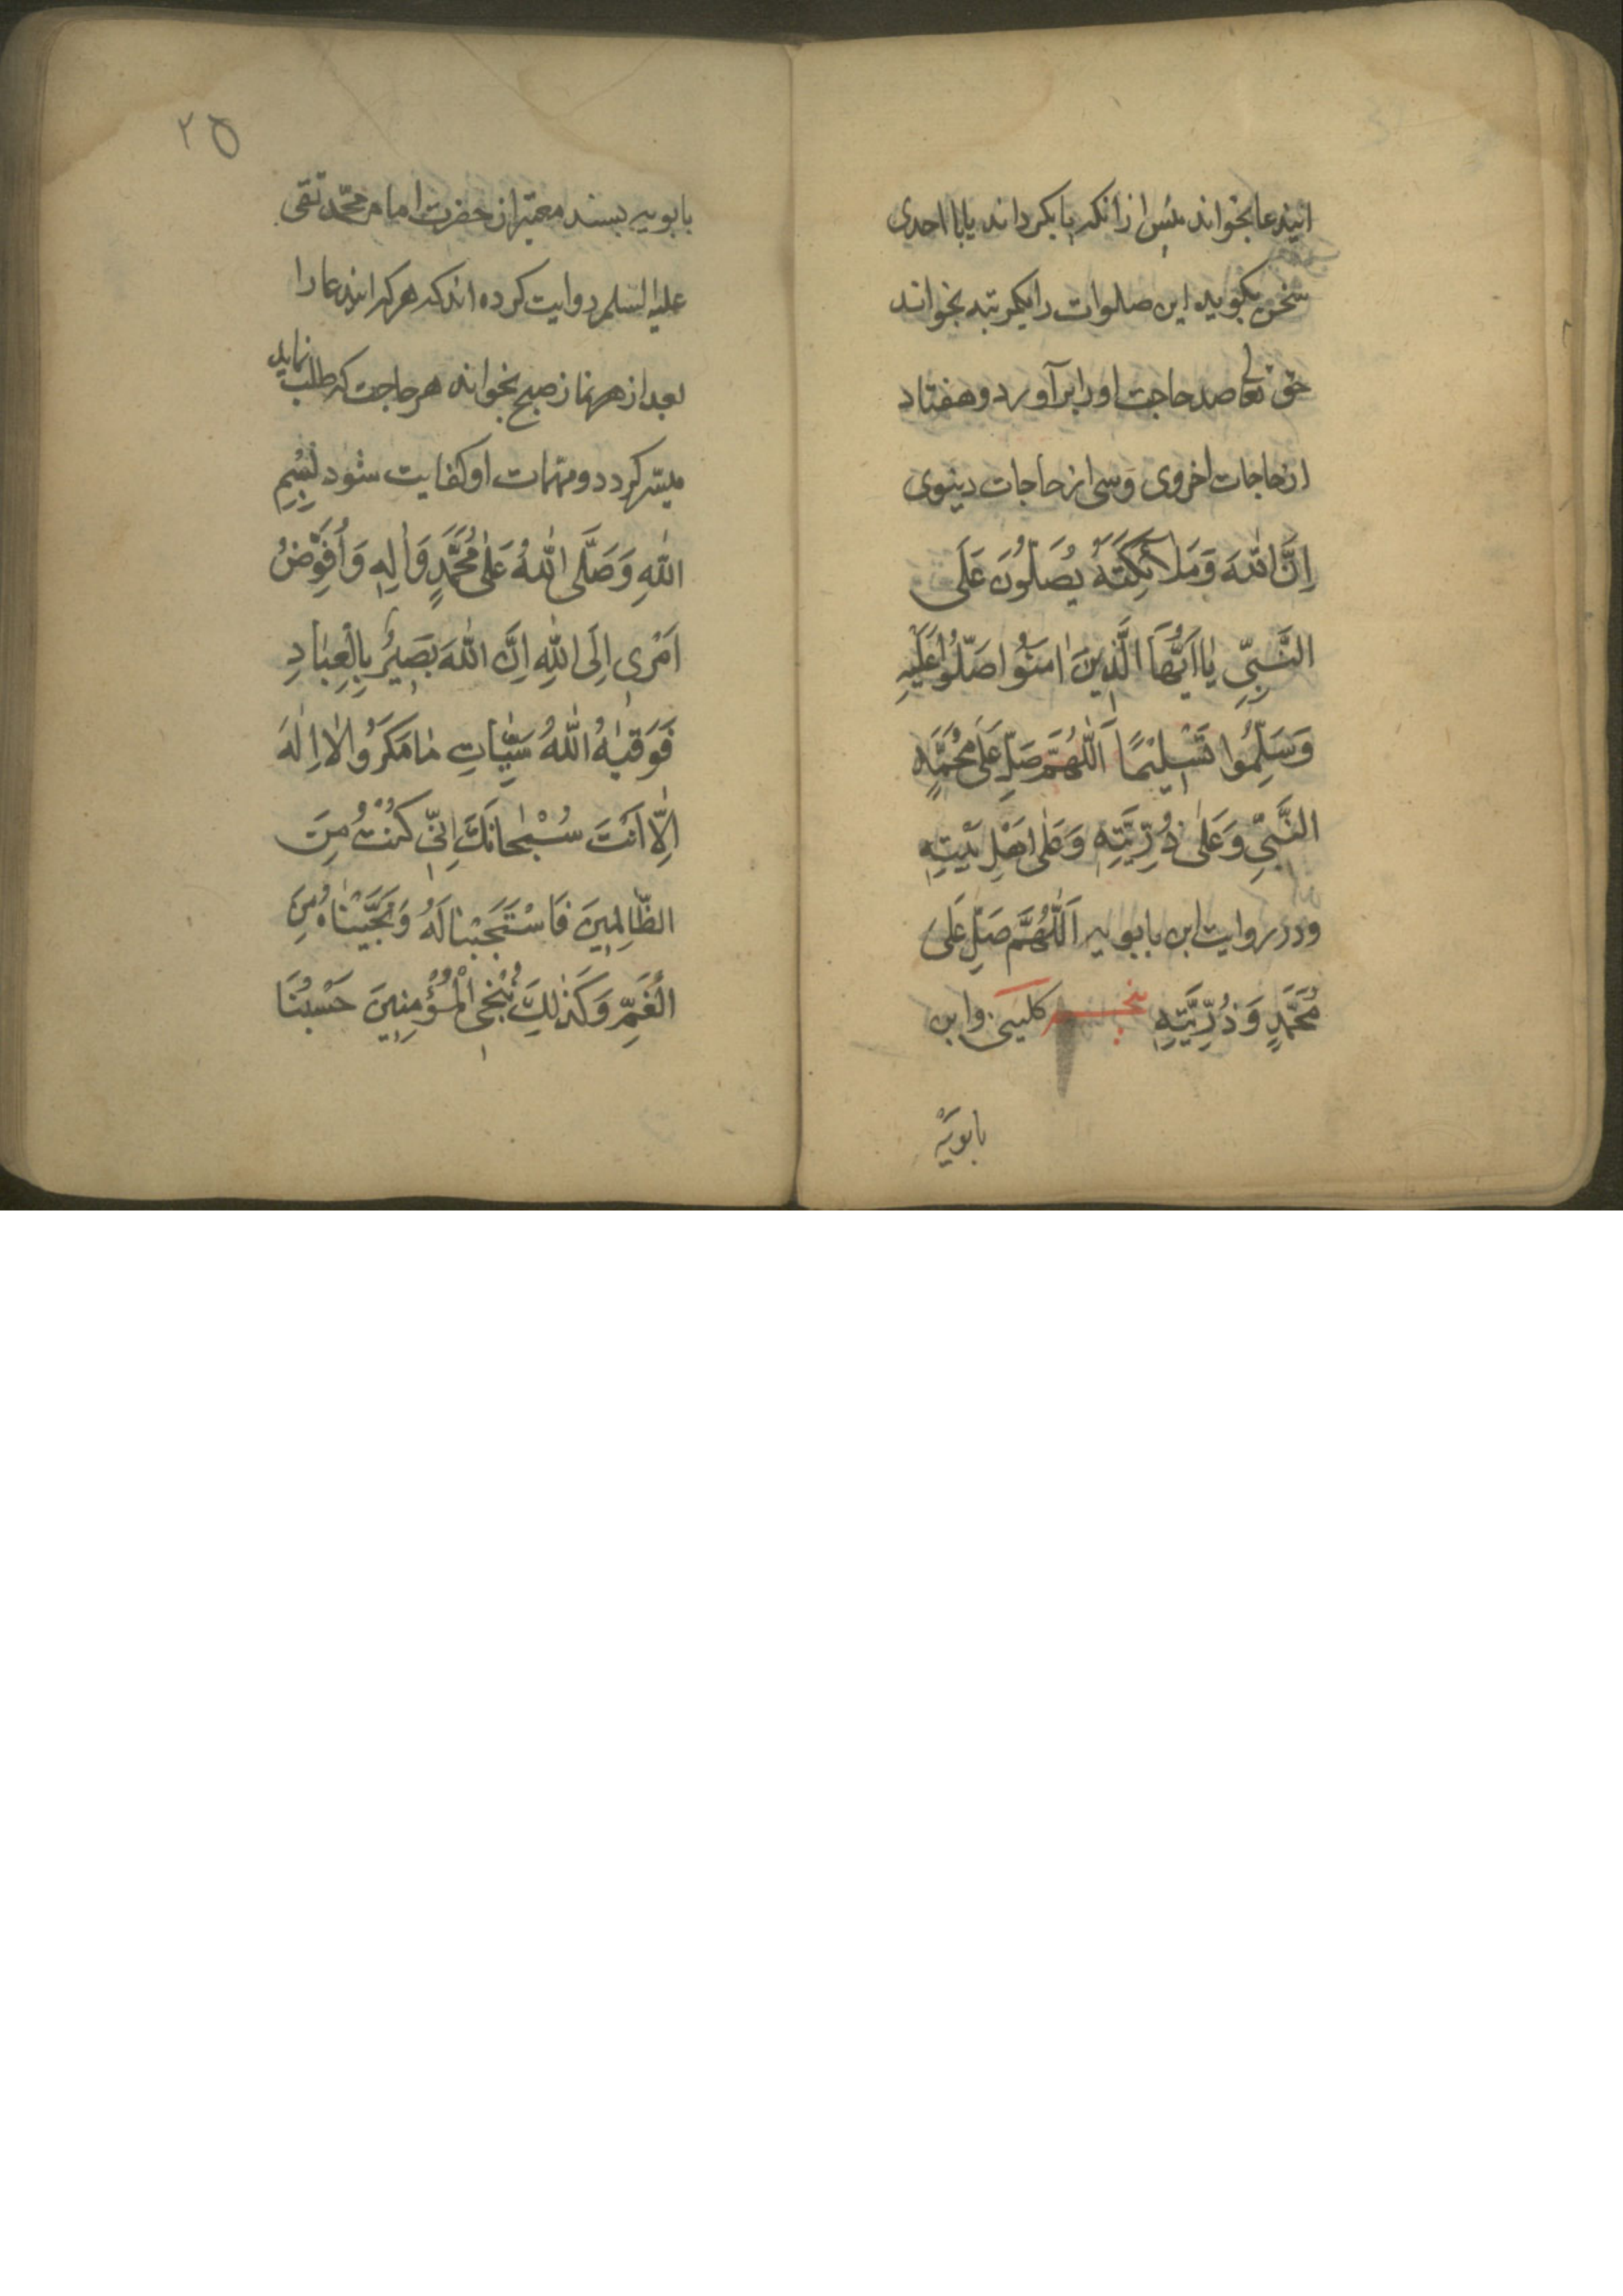 ایندعا بخواند پس از انکه پا بکرداند یا با احدی
سخن بکوید این صلوات را یکمرتبه بخواند
حق تعالی صد حاجت او را برآورد و هفتاد
از حاجات اخروی وسی از حاجات دینوی
اِنَّ اللّٰهَ وَمَلائِكَتَهُ يُصَلُّونَ عَلَى
النَّبِيِّ يٰا اَيُّهَا الَّذِينَ اٰمَنُوا صَلُّوا عَلَيْهِ
وَسَلِّمُوا تَسْلِيْمًا اَللّٰهُمَّ صَلِّ عَلىٰ مُحَمَّدٍ
النَّبِيِّ وَعَلىٰ ذُرِّيَّتِهِ وَعَلىٰ اَهْلِ بَيْتِهِ
ودر روایت ابن بابویه اَللّٰهُمَّ صَلِّ عَلىٰ
مُحَمَّدٍ وَذُرِّيَّتِهِ پنجم کلینی وابن
بابویه
۲۵
بابویه بسند معتبر از حضرت امام محمّد تقی
علیه السلم روایت کرده اند که هر که اینعا را
بعد از هر نماز صبح بخواند هر حاجت که طلب نماید
میسّر کردد ومهمات او کفایت شود بِسْمِ
اللّٰهِ وَصَلَّى اللّٰهُ عَلىٰ مُحَمَّدٍ وَاٰلِهِ وَاُفَوِّضُ
اَمْرِى اِلَى اللّٰهِ اِنَّ اللّٰهَ بَصِيرٌ بِالْعِبٰادِ
فَوَقيٰهُ اللّٰهُ سَيِّئاتِ مٰا مَكَرُوا لاٰ اِلٰهَ
اِلّٰا اَنْتَ سُبْحٰانَكَ اِنِّى كُنْتُ مِنَ
الظّٰالِمِينَ فَاسْتَجَبْنٰا لَهُ وَنَجَّيْنٰاهُ مِنَ
الْغَمِّ وَكَذٰلِكَ نُنْجِى الْمُؤْمِنِينَ حَسْبُنَا